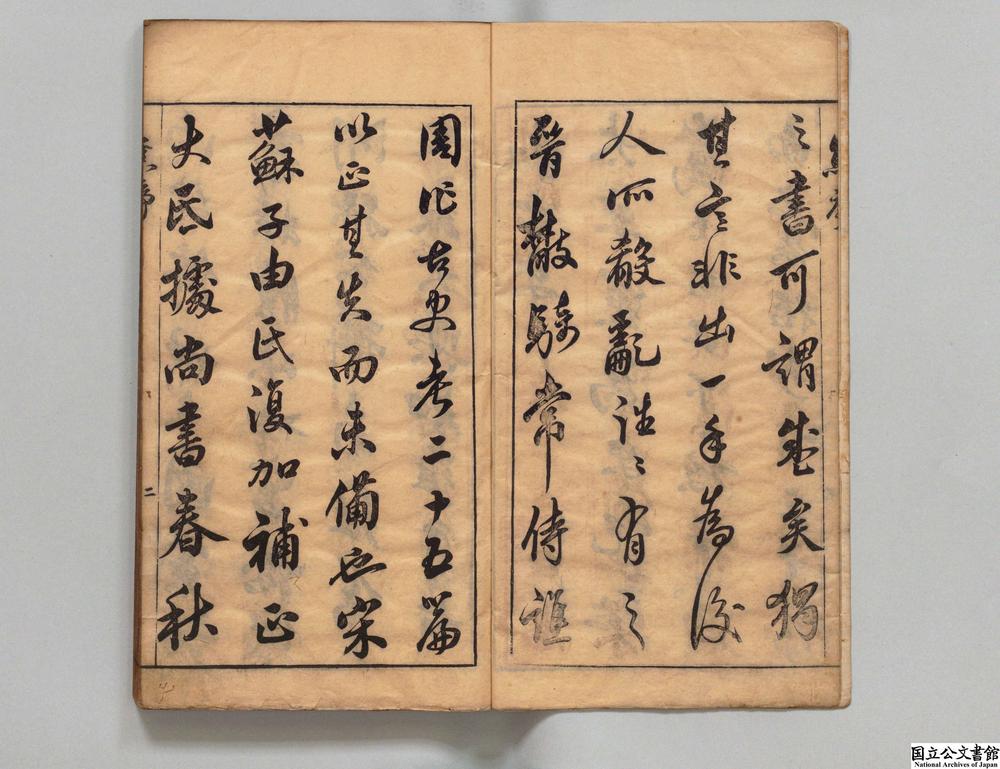 之書可謂盛矣獨
其言非出一手為後
人所殽亂往往有之
晉散騎常侍譙
周作古史考二十五篇
以正其失而未備也宋
蘇子由氏復加補正
大氐據尚書春秋
二
国立公文書館
National Archives of Japan